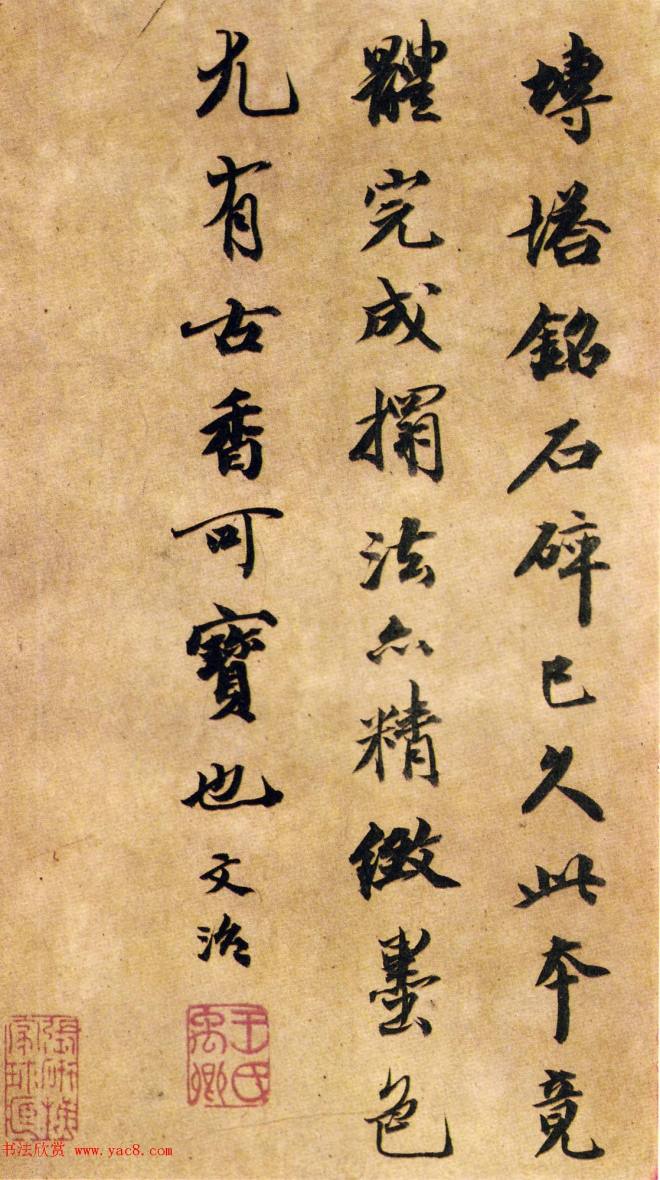 塼塔銘石碎已久此本竟
體完成搨法亦精緻墨色
尤有古香可寶也
文治
王氏禹卿
书法欣赏 www.yac8.com